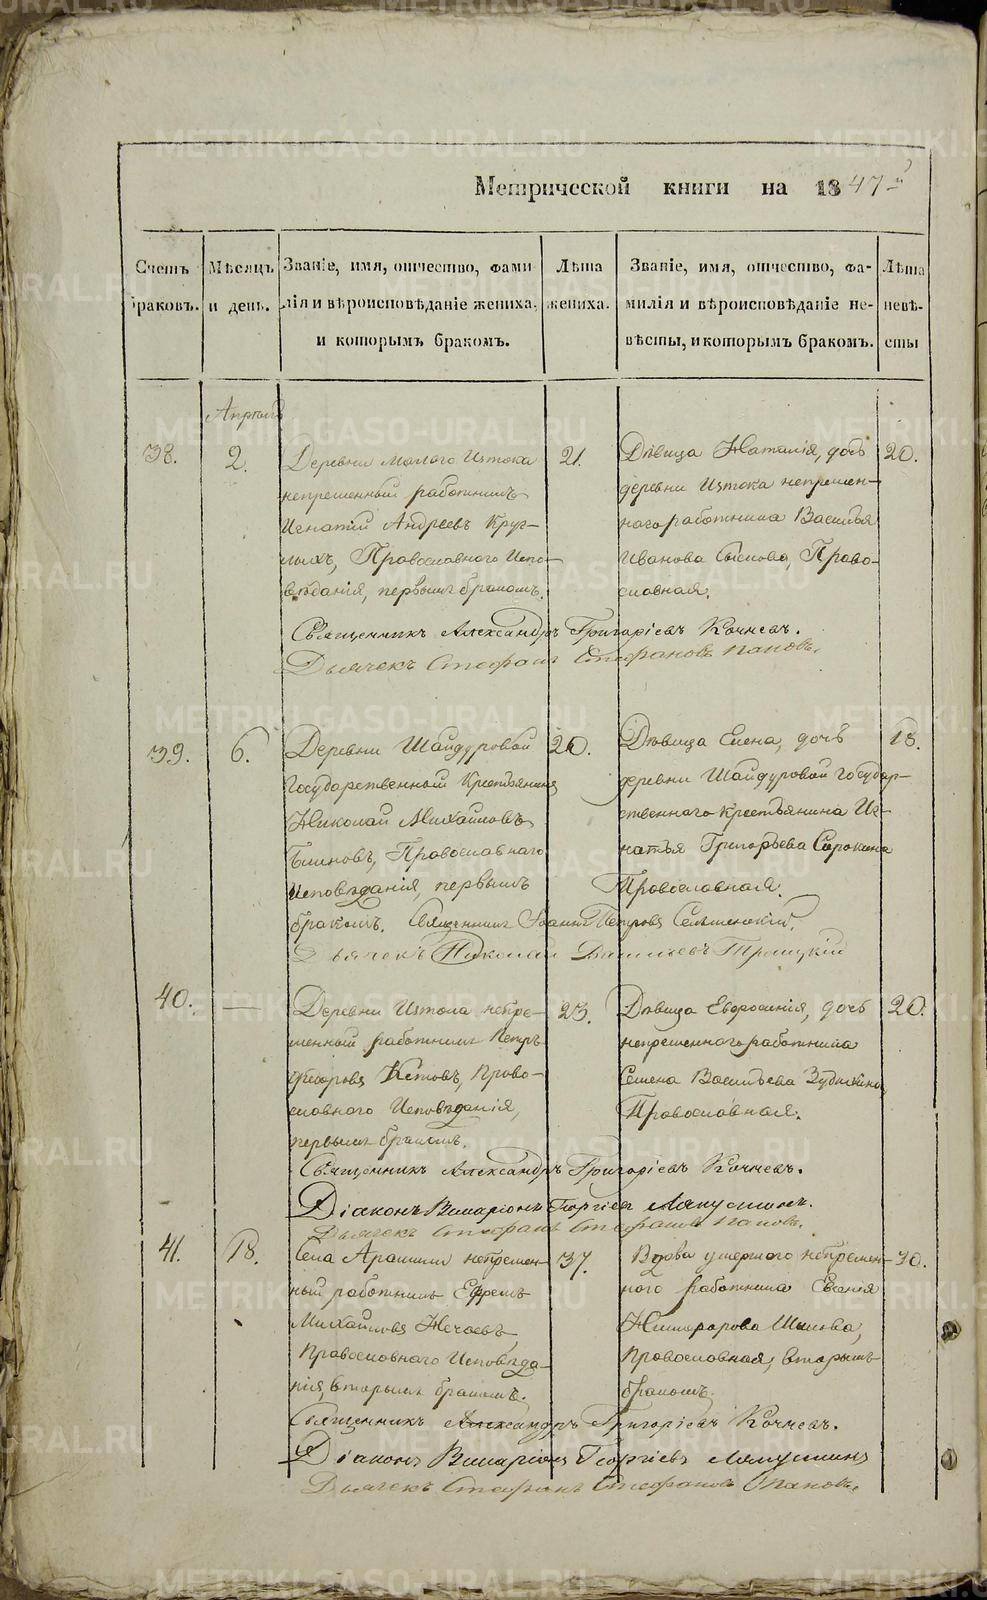 Метрической книги на 1847й
Счетъ браковъ.
Мѣсяцъ и день.
Званіе, имя, отчество, фами
лія и вѣроисповѣданіе жениха,
и которымъ бракомъ.
Лѣта
жениха.
Званіе, имя, отчество, фа-
милія и вѣроисповѣданіе не-
вѣсты, и которымъ бракомъ.
Лѣта
невѣ-
сты
Апрѣль
38.
2.
Деревни Малого Истока
непременный работникъ
Игнатій Андреевъ Круг-
лыхъ, Православнаго Испо-
вѣданія, первымъ бракомъ.
21.
Дѣвица Наталія, дочь
деревни Истока непремен-
наго работника Василья
Иванова, Право-
славная.
20.
Священникъ Александръ Григоріевъ Кочневъ.
Дьячекъ Стефанъ Стефановъ Паповъ.
39.
6.
Деревни Шайдуровой
Государственный Крестьянинъ
Николай Михайловъ
Блиновъ, Православнаго
Исповѣданія, первымъ
бракомъ.
20.
Дѣвица Елена, дочь
деревни Шайдуровой Государ-
ственнаго Крестьянина Иг-
натья Григорьева Сорокина
Православная.
18.
Священникъ Іоаннъ Петровъ
Дьячекъ Николай Васильевъ Троицкій
40.
—
Деревни Истока непре-
менный работникъ Петръ
Ѳедоровъ Кетовъ, Право-
славнаго Исповѣданія,
первымъ бракомъ.
23.
Дѣвица Евфросинія, дочь
непременнаго работника
Семена Васильева
Православная.
20.
Священникъ Александръ Григоріевъ Кочневъ.
Діаконъ Иларіонъ Георгіевъ Ляпустинъ.
Дьячекъ Стефанъ Стефановъ Паповъ.
41.
18.
Села Арамили непремен-
ный работникъ Ефремъ
Михайловъ Нечаевъ
Православнаго Исповѣда-
нія, вторымъ бракомъ.
37.
Вдова умершаго непремен-
наго работника
Никифорова
Православная, вторымъ
бракомъ.
30.
Священникъ Александръ Григоріевъ Кочневъ.
Діаконъ Иларіонъ Георгіевъ Ляпустинъ
Дьячекъ Стефанъ Стефановъ Паповъ.
METRIKI.GASO-URAL.RU